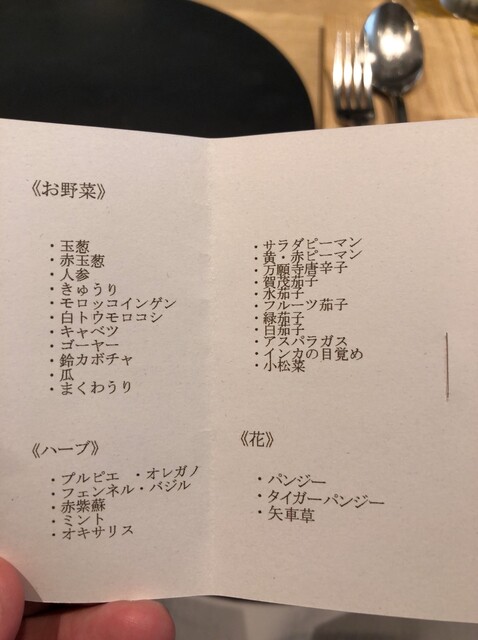 《お野菜》
・玉葱
・赤玉葱
・人参
・きゅうり
・モロッコインゲン
・白トウモロコシ
・キャベツ
・ゴーヤー
・鈴カボチャ
・瓜
・まくわうり
・サラダピーマン
・黄・赤ピーマン
・万願寺唐辛子
・賀茂茄子
・水茄子
・フルーツ茄子
・緑茄子
・白茄子
・アスパラガス
・インカの目覚め
・小松菜
《ハーブ》
・プルピエ ・オレガノ
・フェンネル・バジル
・赤紫蘇
・ミント
・オキサリス
《花》
・パンジー
・タイガーパンジー
・矢車草